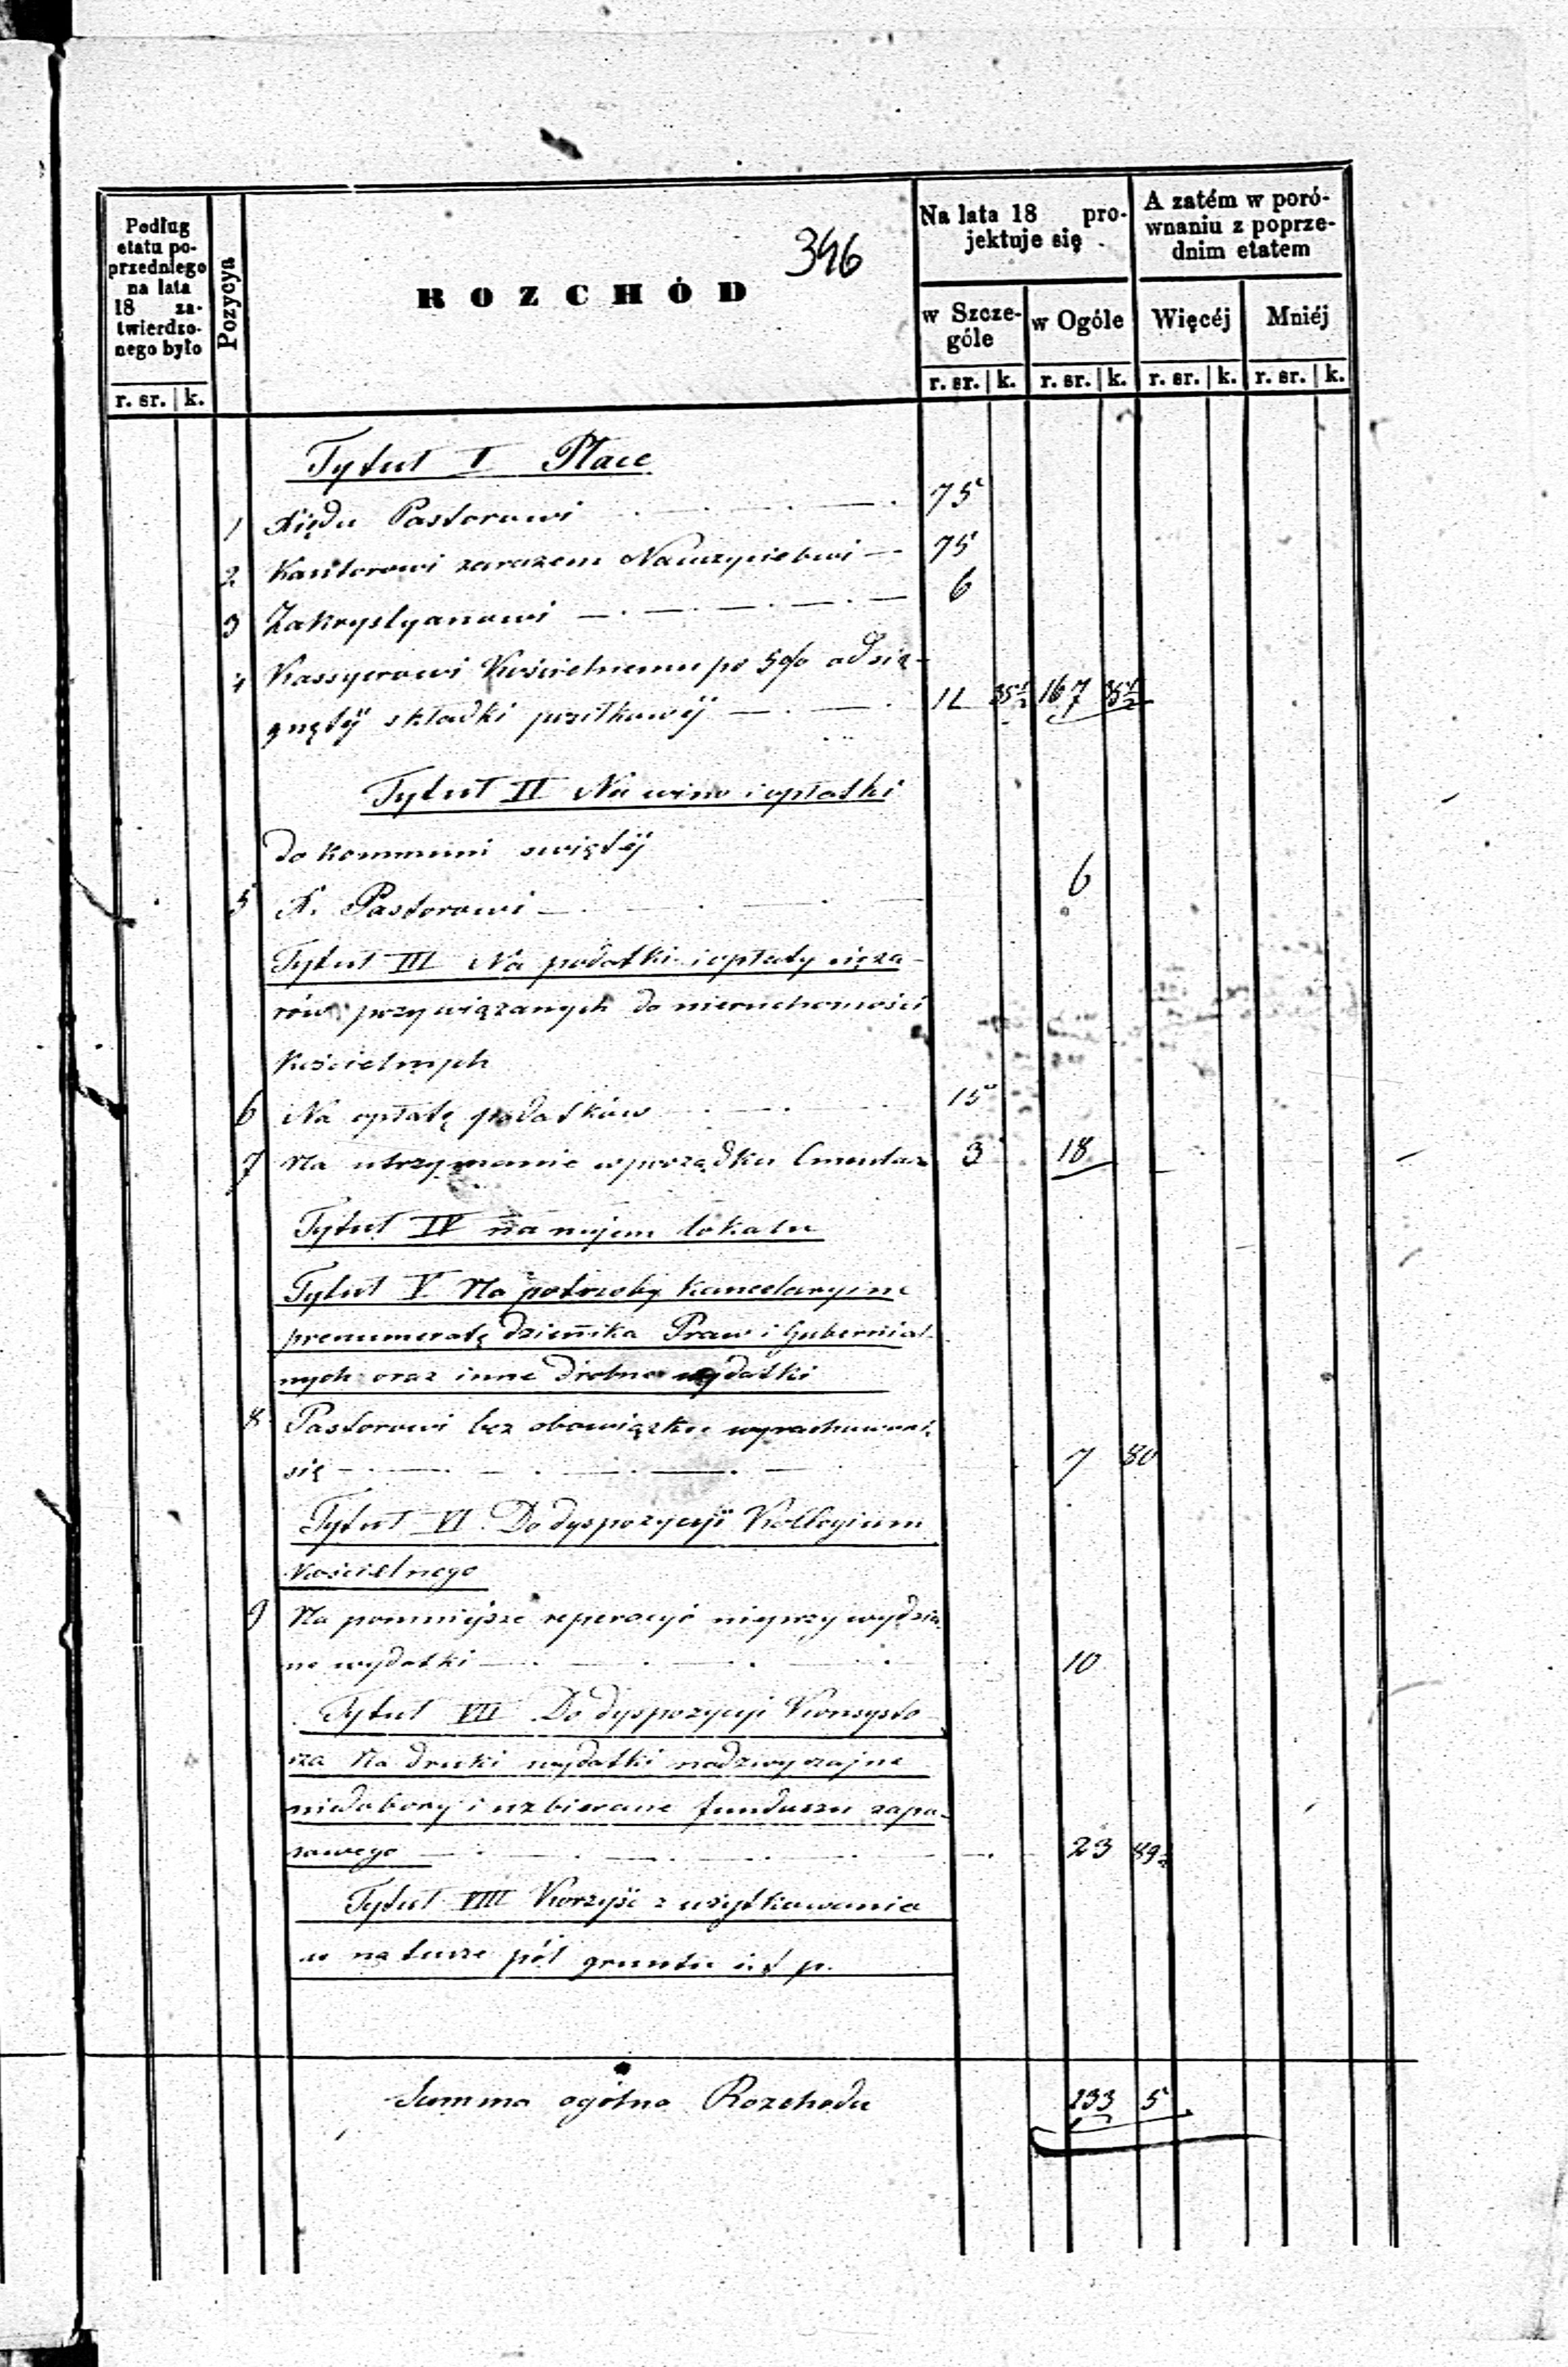 396
Podług etatu poprzedniego na lata 18 zatwierdzonego było
Pozycya
ROZCHÓD
Na lata 18 projektuje się
A zatém w porównaniu z poprzednim etatem
w Szczególe
w Ogóle
Więcéj
Mniéj
r. sr. k.
r. sr. k. r. sr. k. r. sr. k. r. sr. k.
Tytuł I Płace
1 Xiędu Pastorowi 75
2 Kantorowi zarazem Nauczycielowi 75
3 Zakrystyanowi 6
4 Kassyerowi Kościelnemu po 5% od ścią-
gnętéj składki posiłkowéj 11 35½ 167 35½
Tytuł II Na wino i opłatki
do kommuni swiętéj
5 X. Pastorowi 6
Tytuł III Na podatki i opłaty cięża-
rów przywiązanych do nieruchomości
kościelnych
6 Na opłatę podatków 15
7 Na utrzymanie w porządku Cmentarz 3 18
Tytuł IV na najem lokalu
Tytuł V Na potrzeby kancelaryjne
prenumeratę dziennika Praw i Gubernial-
nych oraz inne drobne wydatki
8 Pastorowi bez obowiązku wyrachowani.
się 7 80
Tytuł VI Do dyspozycyi Kollegium
kościelnego
9 Na pomniejsze reperacyé
ne wydatki 10
Tytuł VII Do dyspozycyi Konsysto
rza Na druki wydatki nadzwyczajne
niedobory i uzbieranie funduszu zapa-
sowego 23 89½
Tytuł VIII Korzyść z użytkowania
w naturze pól gruntu i t p.
Summa ogólna Rozchodu 233 5